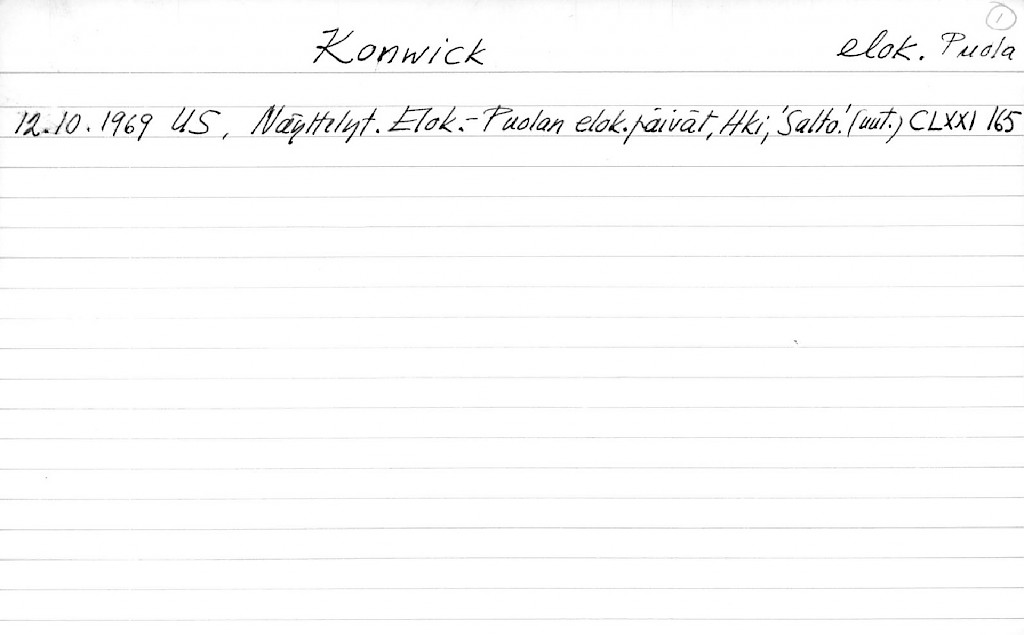 1
Konwick elok. Puola
12.10.1969 US, Näyttelyt. Elok.- Puolan elok.päivät, Hki, 'Salto'. (uut.) CLXXI 165